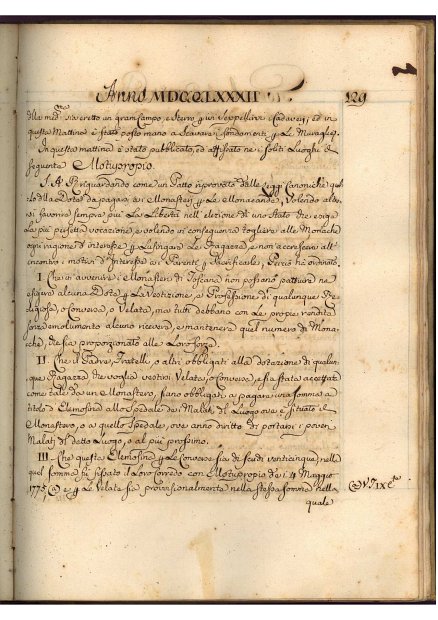 Anno MDCCLXXXII
129
sia eretto un gran Campo, e Sterro p seppellire i Cadaveri; ed in
questa Mattina è stato posto mano a Scavare i fondamenti p Le Muraglie.
In questa mattina è stato pubblicato, ed affissato ne i soliti Luoghi il
seguente Motuproprio.
S. A. R. riguardando come un Patto riprovato dalle Leggi Canoniche
della Dota da pagarsi ai Monasteri p Le Monacande, Volendo
favorire sempre più La Libertà nell'elezione di uno stato che esige
La più perfetta vocazione, e volendo in conseguenza togliere alle Monache
ogni ragione d'interesse p Lusingare Le Ragazze, e non accrescere all'
incontro i motivi d'Interesse ai Parenti p Sacrificarle, Perciò ha ordinato.
I. Che in avvenire i Monasteri di Toscana non possano patture ne
esigere alcuna Dota p La Vestizione, o Professione di qualunque Re-
ligiosa, o Conversa, o Velata, mai tutti debbano con Le proprie rendite
senza emolumento alcuno ricevere, e mantenere quel numero di Mona-
che, che sia proporzionato alle Loro forze.
II. Che il Padre, Fratelli, o altri obbligati alla dotazione di qualun-
que Ragazza che voglia vestirsi Velata, o Conversa, e sia stata accettata
come tale da un Monastero, siano obbligati a pagare una somma a
titolo d'Elemosina allo Spedale dei Malati del Luogo ove è situato il
Monastero, o a quello Spedale, ove anno diritto di portarsi i poveri
Malati del detto Luogo, o al più prossimo.
III. Che questa Elemosina p Le Converse sia di scudi venticinque, nella
quel somma fù fissato il Loro corredo con Motuproprio de i 4 Maggio
1775 @ e p Le Velate sia provisionalmente nella stessa somma nella
quale